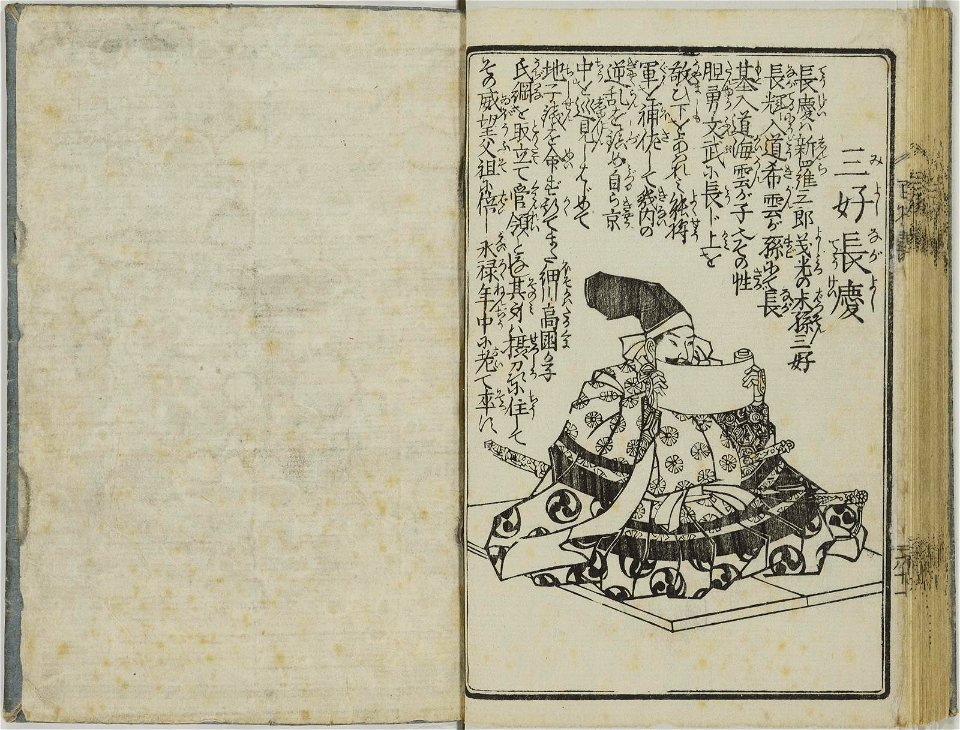 三好長慶
長慶ハ新羅三郎義光の末孫三好
長輝入道希雲が孫にて長
基入道海雲が子也その性
胆勇文武に長じ上を
敬ひ下をあはれミ
軍を補佐して畿内の
逆乱を鎮め自ら京
中を巡見しはじめて
地子銭を命ず
また細川高国の子
氏綱を取立て管領となし其身ハ摂刕に住して
その威望父祖に倍し永禄年中に老て卒す